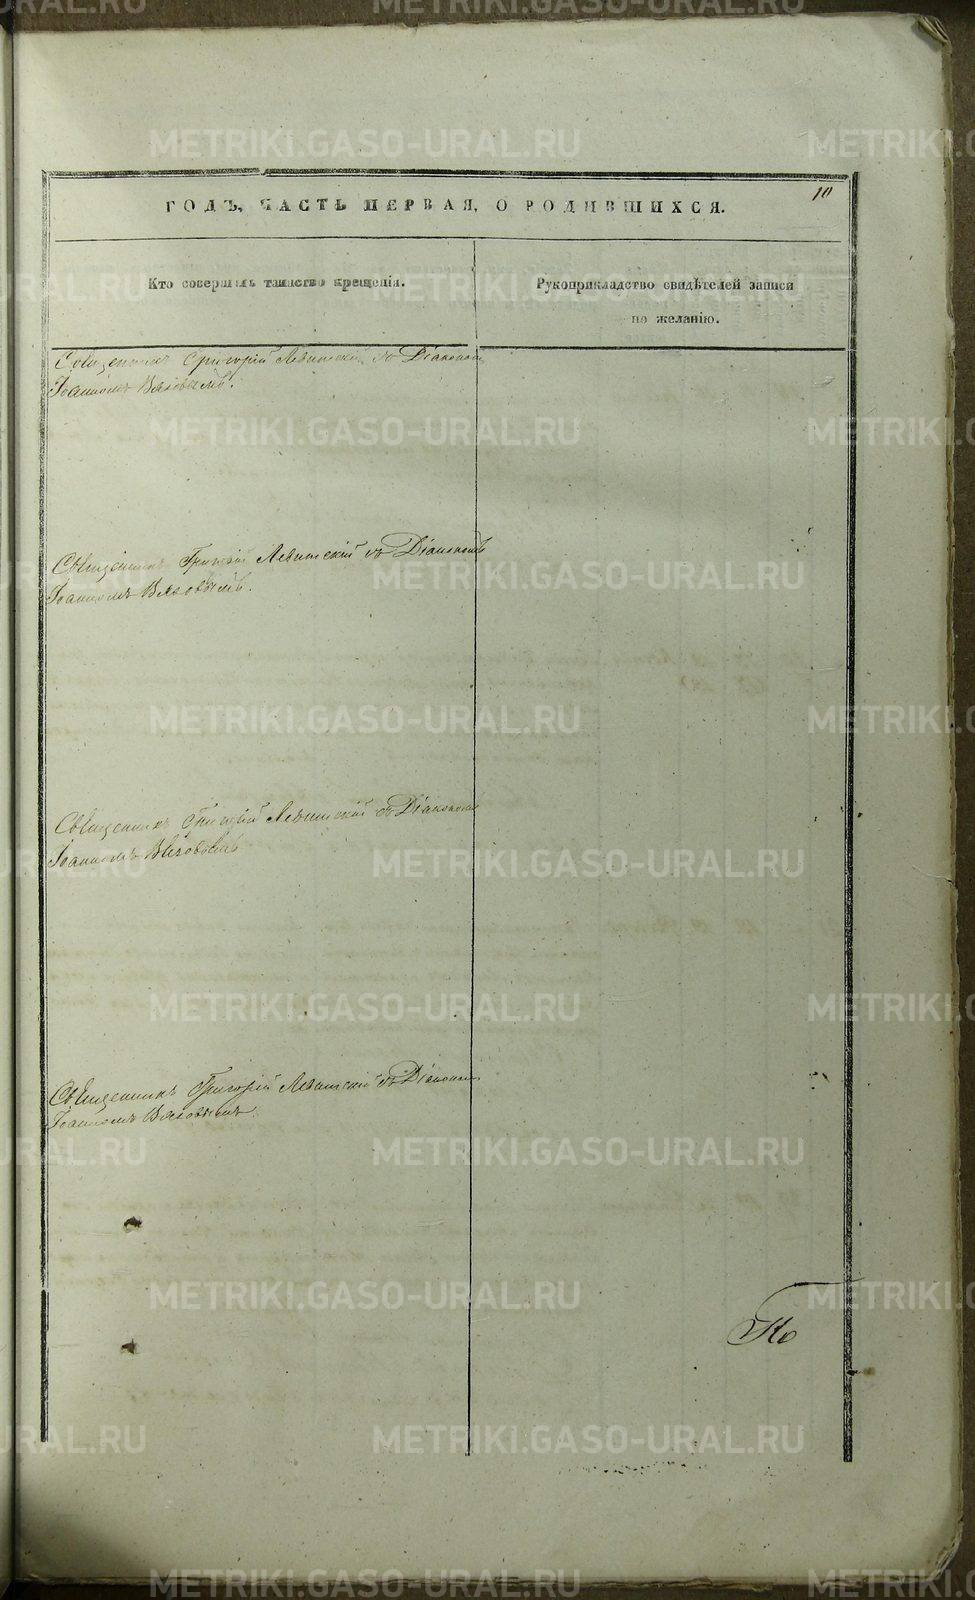 10
ГОДЪ, ЧАСТЬ ПЕРВАЯ, О РОДИВШИХСЯ.
Кто совершилъ таинство крещенія.
Рукоприкладство свидѣтелей записи
по желанію.
Священникъ Григорій Левитскій съ Діакономъ
Іоанномъ Вязовымъ.
Священникъ Григорій Левитскій съ Діакономъ
Іоанномъ Вязовымъ.
Священникъ Григорій Левитскій съ Діакономъ
Іоанномъ Вязовымъ
Священникъ Григорій Левитскій съ Діакономъ
Іоанномъ Вязовымъ.
METRIKI.GASO-URAL.RU